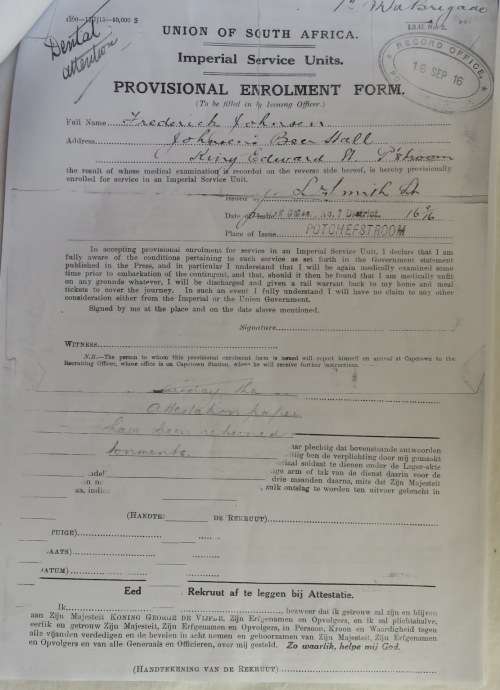 1st Inf Brigade
1590—15/7/15—40,000 S
Dental
attention
UNION OF SOUTH AFRICA.
RECORD OFFICE
16 SEP 16
Imperial Service Units.
PROVISIONAL ENROLMENT FORM.
(To be filled in by Issuing Officer.)
Full Name Frederick Johnsen
Address Johnsen's Beer Hall
King Edward St P'stroom
the result of whose medical examination is recorded on the reverse side hereof, is hereby provisionally
enrolled for service in an Imperial Service Unit.
L Smith Lt
Date of No. 7 District 16
Place of Issue POTCHEFSTROOM
In accepting provisional enrolment for service in an Imperial Service Unit, I declare that I am
fully aware of the conditions pertaining to such service as set forth in the Government statement
published in the Press, and in particular I understand that I will be again medically examined some
time prior to embarkation of the contingent, and that, should it then be found that I am medically unfit
on any grounds whatever, I will be discharged and given a rail warrant back to my home and meal
tickets to cover the journey. In such an event I fully understand I will have no claim to any other
consideration either from the Imperial or the Union Government.
Signed by me at the place and on the date above mentioned.
Signature
Witness
N.B.—The person to whom this provisional enrolment form is issued will report himself on arrival at Capetown to the
Recruiting Officer, whose office is on Capetown Station, where he will receive further instructions.
the
attestation paper
have been returned
aar plechtig dat bovenstaande antwoorden
illig ben de verplichting door mij gemaakt
riaal soldaat te dienen onder de Luper-akte
ige arm of tak van de dienst daarin voor de
drie maanden daarna, mits dat Zijn Majesteit
aa, indien zulk ontslag te worden ten uitvoer gebracht in
(HANDTE DE REKRUUT)
PUIGE)
AATS)
ATUM)
Eed Rekruut af te leggen bij Attestatie.
Ik bezweer dat ik getrouw zal zijn en blijven
aan Zijn Majesteit KONING GEORGE DE VIJFDE, Zijn Erfgenamen en Opvolgers, en ik zal plichtshalve,
eerlik en getrouw Zijn Majesteit, Zijn Erfgenamen en Opvolgers, in Persoon, Kroon en Waardigheid tegen
alle vijanden verdedigen en de bevelen in acht nemen en gehoorzamen van Zijn Majesteit, Zijn Erfgenamen
en Opvolgers en van alle Generaals en Officieren, over mij gesteld. Zo waarlik, helpe mij God.
(HANDTEKENING VAN DE REKRUUT)